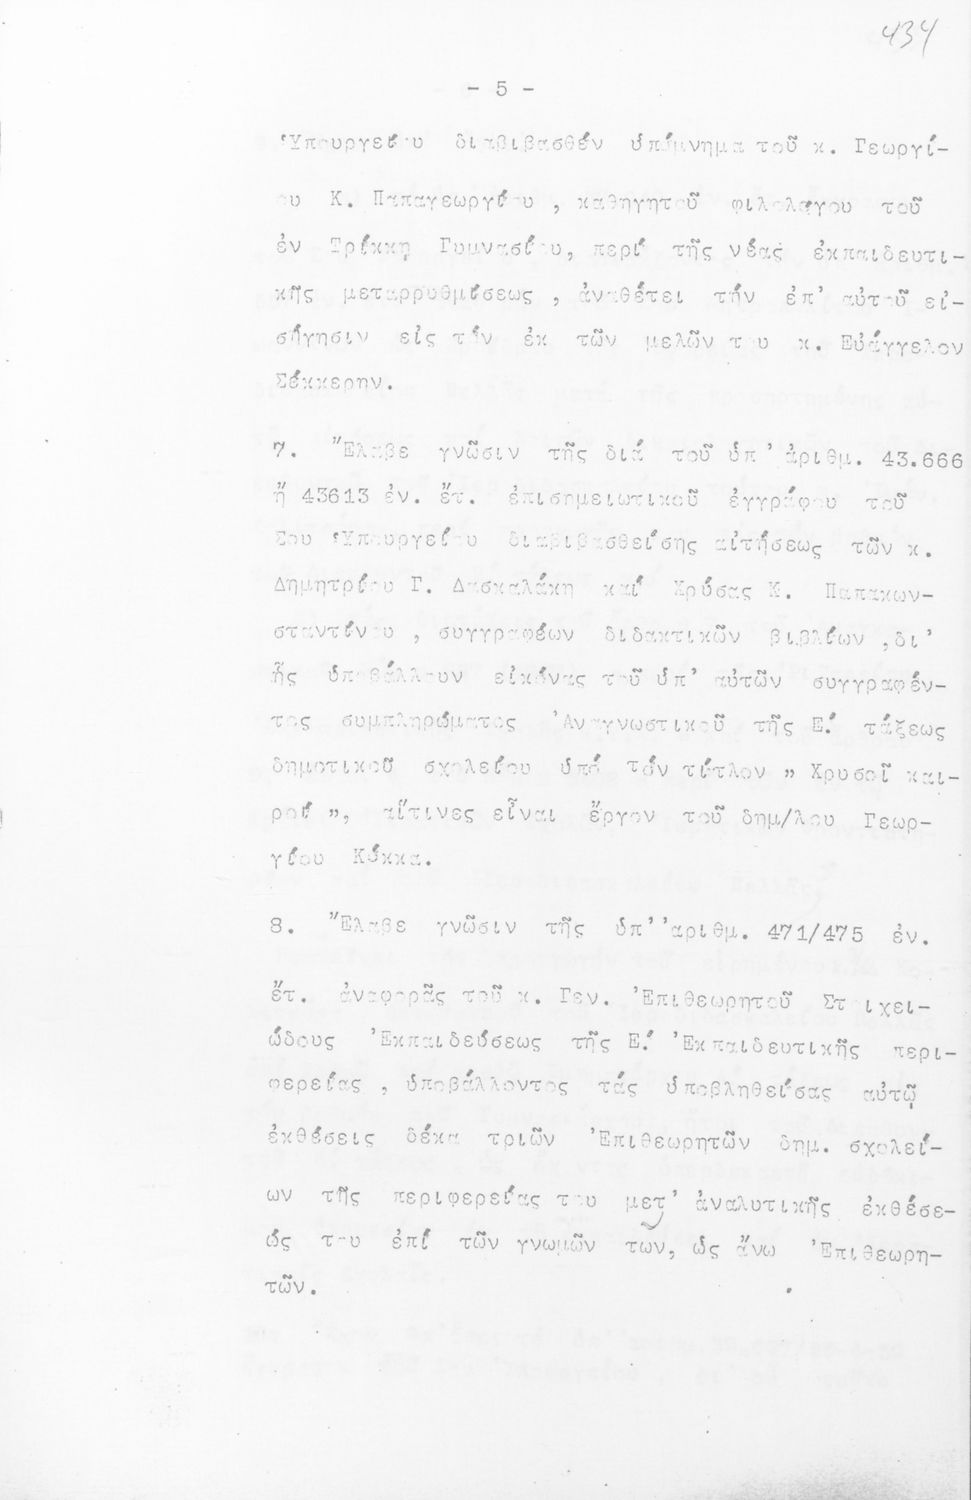 434
- 5 -
Ὑπουργείου διαβιβασθέν ὑπόμνημα τοῦ κ. Γεωργί-
ου Κ. Παπαγεωργίου , καθηγητοῦ φιλολόγου τοῦ
ἐν Τρίκκῃ Γυμνασίου, περί τῆς νέας ἐκπαιδευτι-
κῆς μεταρρυθμίσεως , ἀναθέτει τήν ἐπ' αὐτοῦ εἰ-
σήγησιν εἰς τόν ἐκ τῶν μελῶν του κ. Εὐάγγελον
Σέκκερην.
7. Ἔλαβε γνῶσιν τῆς διά τοῦ ὑπ' ἀριθμ. 43.666
ἤ 43613 ἐν. ἔτ. ἐπισημειωτικοῦ ἐγγράφου τοῦ
Σου Ὑπουργείου διαβιβασθείσης αἰτήσεως τῶν κ.
Δημητρίου Γ. Δασκαλάκη καί Χρύσας Κ. Παπακων-
σταντίνου , συγγραφέων διδακτικῶν βιβλίων ,δι'
ἧς ὑποβάλλουν εἰκόνας τοῦ ὑπ' αὐτῶν συγγραφέν-
τος συμπληρώματος Ἀναγνωστικοῦ τῆς Ε΄. τάξεως
δημοτικοῦ σχολείου ὑπό τόν τίτλον " Χρυσοῖ και-
ροί ", αἵτινες εἶναι ἔργον τοῦ δημ/λου Γεωρ-
γίου Κόκκα.
8. Ἔλαβε γνῶσιν τῆς ὑπ' ἀριθμ. 471/475 ἐν.
ἔτ. ἀναφορᾶς τοῦ κ. Γεν. Ἐπιθεωρητοῦ Στοιχει-
ώδους Ἐκπαιδεύσεως τῆς Ε΄. Ἐκπαιδευτικῆς περι-
φερείας , ὑποβάλλοντος τάς ὑποβληθείσας αὐτῷ
ἐκθέσεις δέκα τριῶν Ἐπιθεωρητῶν δημ. σχολεί-
ων τῆς περιφερείας του μετ' ἀναλυτικῆς ἐκθέσε-
ώς του ἐπί τῶν γνωμῶν των, ὡς ἄνω Ἐπιθεωρη-
τῶν.